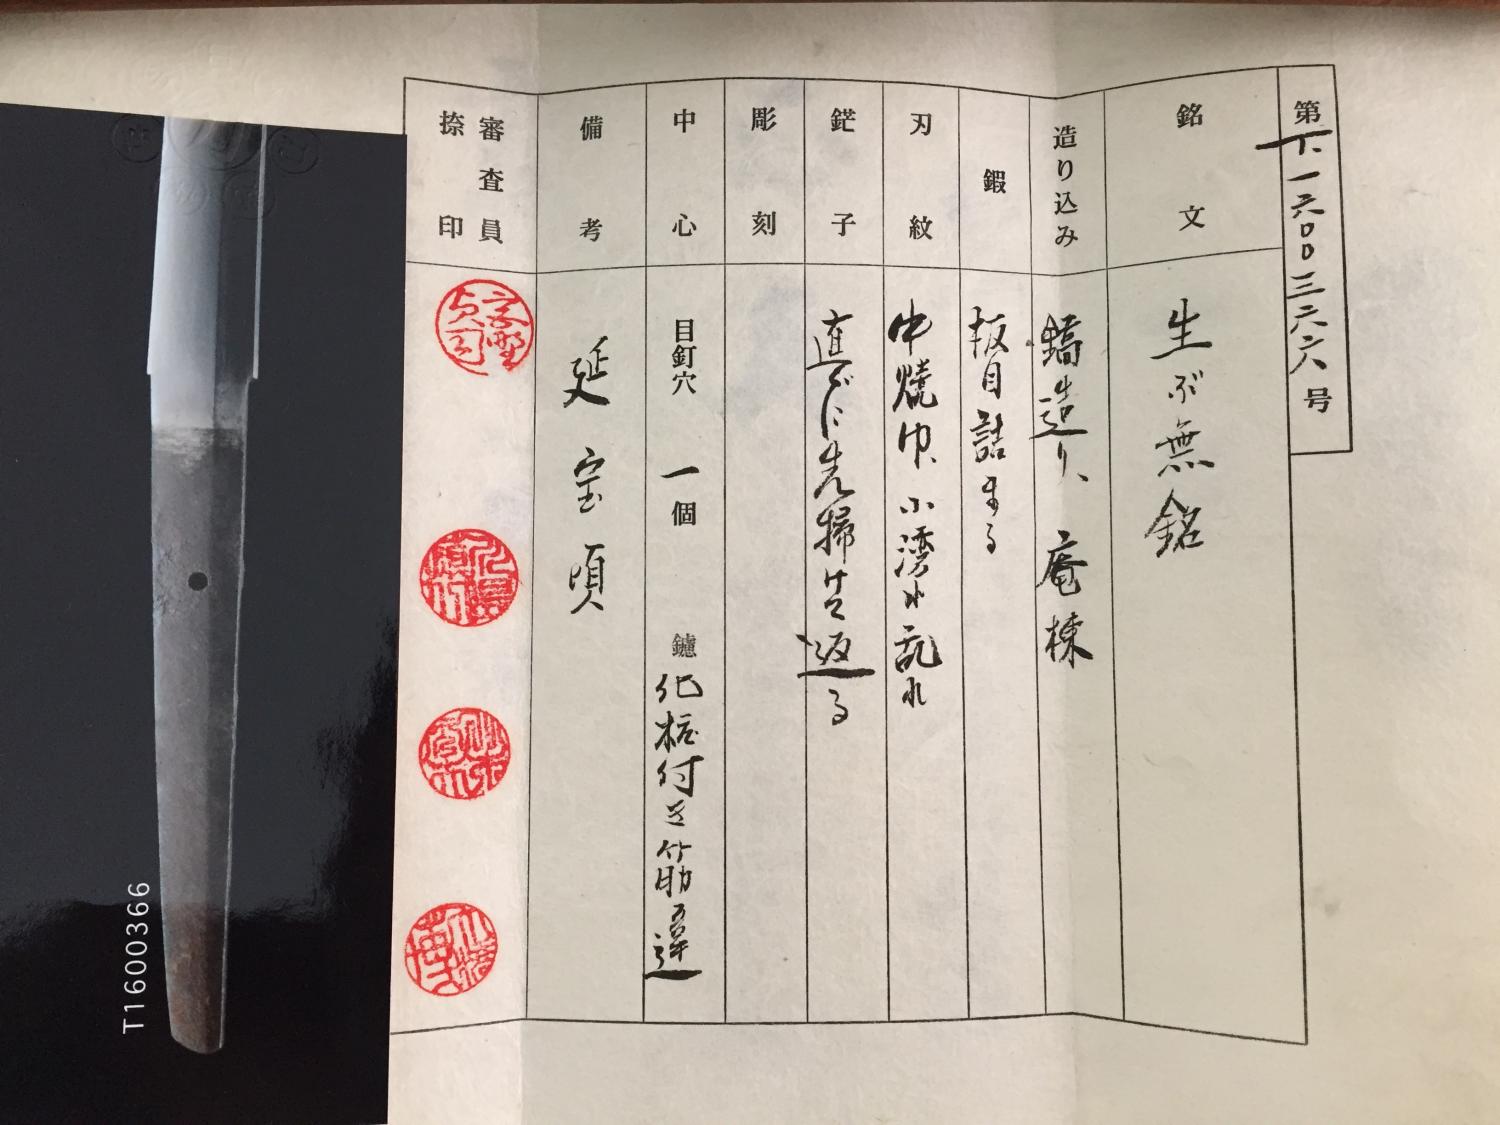 第T.一六〇〇三六六号
銘文
生ぶ無銘
造り込み
鎬造り、庵棟
鍜
板目詰まる
刃紋
中焼巾、小湾れ乱れ
鋩子
直ぐに先掃け返る
彫刻
中心
目釘穴 一個 鑢 化粧付き筋違
備考
延宝頃
審査員
捺印
T1600366